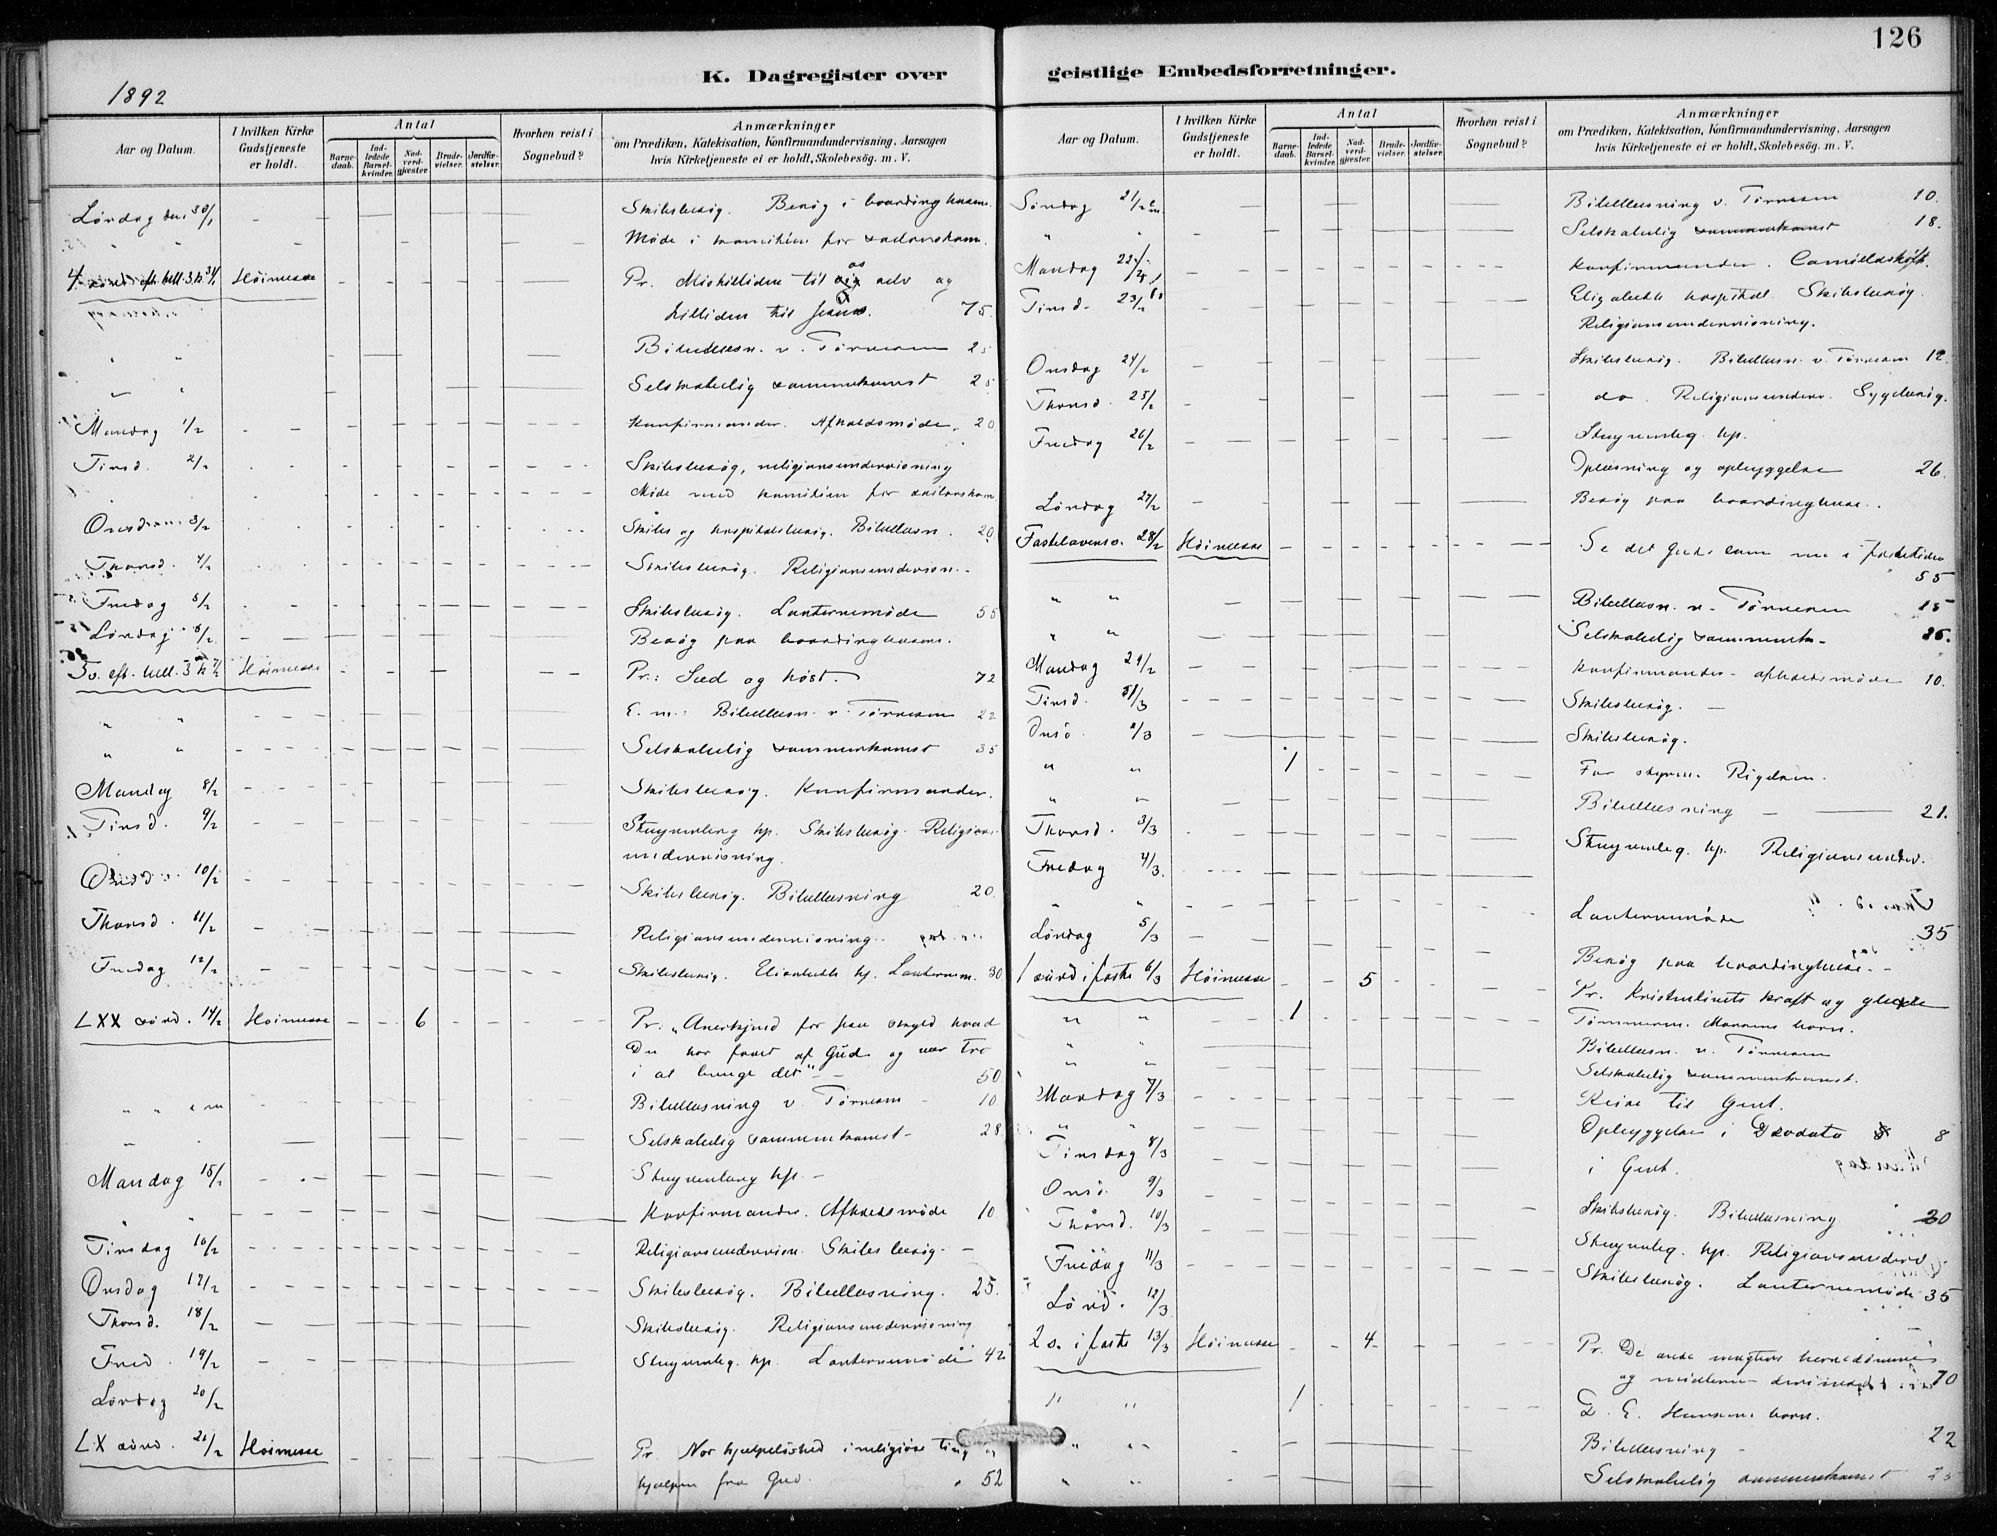 126
K. Dagregister over geistlige Embedsforretninger.
1892
Aar og Datum.
I hvilken Kirke Gudstjeneste er holdt.
Antal
Barnedaab.
Indledede Barselkvinder.
Nadverdgjæster
Brudevielser.
Jordfæstelser.
Hvorhen reist i Sognebud?
Anmærkninger
om Prædiken, Katekisation, Konfirmandundervisning, Aarsagen
hvis Kirketjeneste ei er holdt, Skolebesøg. m. V.
Lørdag den 30/1 Skibsbesøg. Besøg i boardinghusene.
" " Møde i komitéen for
4. sønd. eft. hell. 3 k. 31/1 Høimesse Pr. Mistilliden til os selv og
tilliden til Jesus. 75.
" " Bibellæsn. v. Tørnesen 25
" " Selskabelig sammenkomst 25
Mandag 1/2 Konfirmander. Afholdsmøde. 20
Tirsd. 2/2 Skibsbesøg, religionsundervisning
Møde med komitéen for
Onsdag 3/2 Skibs og hospitalsbesøg. Bibellæsn. 20
Thorsd. 4/2 Skibsbesøg. Religionsundervisn.
Fredag 5/2 Skibsbesøg. Lanternemøde 55
Lørdag 6/2 Besøg paa boardinghusene.
5 s. eft. hell. 3 k. 7/2 Høimesse Pr.: Sæd og høst. 72
" " E. m.: Bibellæsn. v. Tørnesen 22
" " Selskabelig sammenkomst 35
Mandag 8/2 Skibsbesøg. Konfirmander.
Tirsd. 9/2 Stuyvenberg hp. Skibsbesøg. Religions-
undervisning.
Onsd. 10/2 Skibsbesøg. Bibellæsning 20.
Thorsd. 11/2 Religionsundervisning.
Fredag 12/2 Skibsbesøg. Elisabeth hp. Lanternem. 30
LXX sønd. 14/2 Høimesse 6 Pr. "Anerkjend for paa skyld hvad
Du har faaet af Gud og vær tro
i at bruge det" 50
" " e m Bibellæsning v. Tørnesen 10
" " Selskabelig sammenkomst 28
Mandag 15/2 Stuyvenberg hp.
" " Konfirmander. Afholdsmøde 10.
Tirsdag 16/2 Religionsundervisn. Skibsbesøg.
Onsdag 17/2 Skibsbesøg. Bibellæsning. 25.
Thorsd. 18/2 Skibsbesøg. Religionsundervisning
Fred. 19/2 Stuyvenbg. hp. Lanternemøde 42
Lørdag 20/2
LX sønd. 21/2 Høimesse Pr. Vor hjælpeløshed i religiøse ting og
hjælpen fra Gud. 52
Aar og Datum.
I hvilken Kirke Gudstjeneste er holdt.
Antal
Barnedaab.
Indledede Barselkvinder.
Nadverdgjæster
Brudevielser.
Jordfæstelser.
Hvorhen reist i Sognebud?
Anmærkninger
om Prædiken, Katekisation, Konfirmandundervisning, Aarsagen
hvis Kirketjeneste ei er holdt, Skolebesøg. m. V.
Søndag 21/2 em. Bibellæsning v. Tørnesen 10.
" " Selskabelig sammenkomst 18.
Mandag 22/2 Konfirmander.
Tirsd. 23/2 Elizabeth hospital. Skibsbesøg.
Religionsundervisning.
Onsdag 24/2 Skibsbesøg. Bibellæsn. v. Tørnesen 12.
Thorsd. 25/2 do. Religionsunderv. Sygebesøg.
Fredag 26/2 Stuyvenbg. hp.
Oplæsning og opbyggelse 26.
Lørdag 27/2 Besøg paa boardinghuse.
Fastelavenss. 28/2 Høimesse Se det Guds lam nu i fastetiden
55
" " Bibellæsn. v. Tørnesen 15
" " Selskabelig sammenk. 25.
Mandag 29/2 Konfirmander. afholdsmøde 10.
Tirsd. 1/3 Skibsbesøg.
Onsd. 2/3 Skibsbesøg.
" " 1 For styrm. Rigelsen.
" " Bibellæsning 21.
Thorsd. 3/3 Stuyvenbg. hp. Religionsunderv.
Fredag 4/3
" " Lanternemøde 35
Lørdag 5/3 Besøg paa boardinghuse.
1 sønd i faste 6/3 Høimesse 5 Pr. Kristenlivets kraft og glæde
" " 1 Tømmerm. barn.
" " Bibellæsn. v. Tørnesen
" " Selskabelig sammenkomst.
Mandag 7/3 Reise til Gent.
" " Opbyggelse i Deodata 8
Tirsdag 8/3 i Gent.
Onsd. 9/3 Skibsbesøg. Bibellæsning 20
Thorsd. 10/3 Stuyvenbg. hp. Religionsunderv.
Fredag 11/3 Skibsbesøg. Lanternemøde 35
Lørd. 12/3
2 s. i faste 13/3 Høimesse 4 Pr. De onde magters herredømme
og midlerne 70
" " 1 barn.
" " Bibellæsning 22
" " Selskabelig sammenkomst